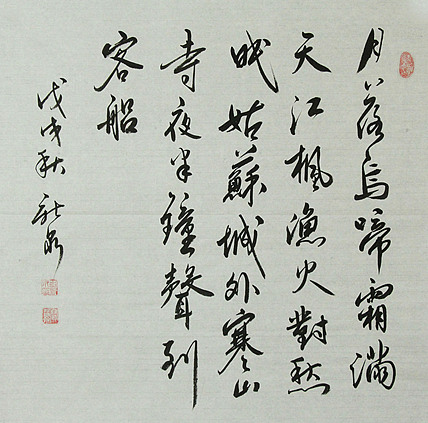 月落烏啼霜滿
天江楓漁火對愁
眠姑蘇城外寒山
寺夜半鐘聲到
客船
戊戌秋